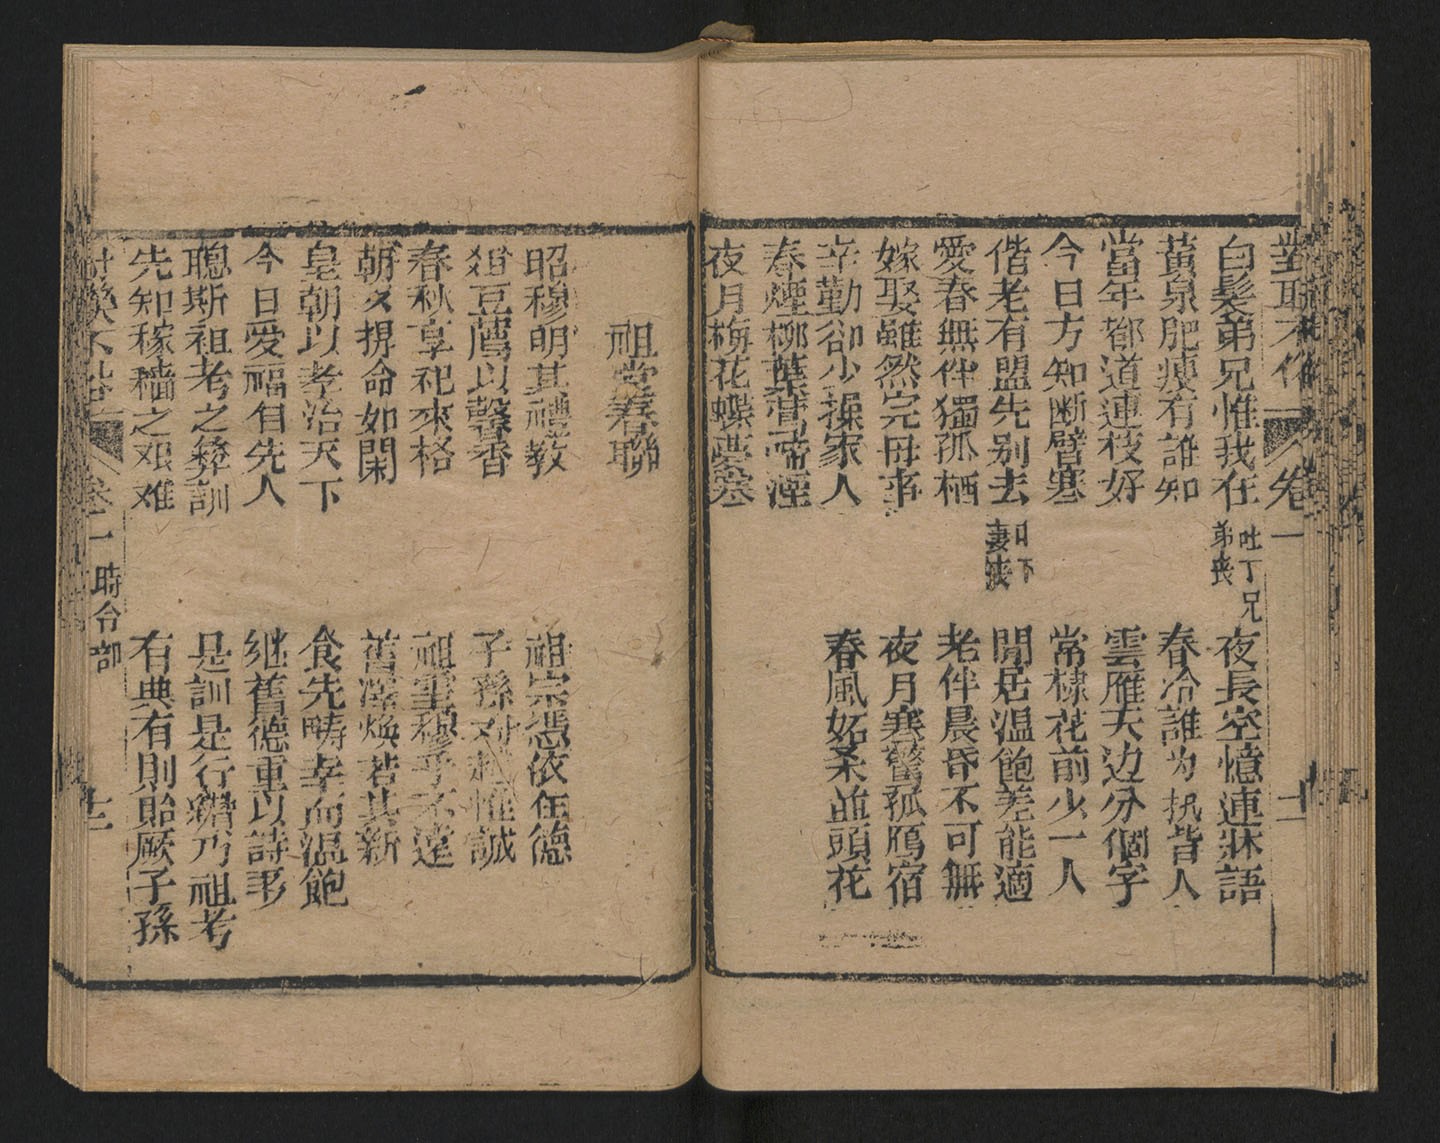 對聯不俗 卷一 十一
白髮弟兄惟我在 吐丁兄弟丧
夜長空憶連牀語
黃泉肥瘦有誰知
春冷誰为执皆人
當年都道連枝好
雲雁天边分個字
今日方知断臂寒
常棣花前少一人
偕老有盟先别去 以下妻丧
閒居温飽差能適
愛春無伴獨孤栖
老伴晨昏不可無
嫁娶雖然完毋事
夜月寒驚孤鴈宿
辛勤卻少操家人
春風妬柔並頭花
春煙柳葉鶯啼湮
夜月梅花蝶夢寒
祖堂春聯
昭穆明其禮教
祖宗憑依在德
俎豆薦以馨香
子孫对越惟誠
春秋享祀來格
祖霊穆乎不遠
朝夕拚命如閑
舊澤煥若其新
皇朝以孝治天下
食先疇幸而温飽
今日愛福自先人
继舊德重以詩書
聰斯祖考之彝訓
是訓是行纘乃祖考
先知稼穡之艰难
有典有則貽厥子孫
對聯不俗 卷一 時令部 十二